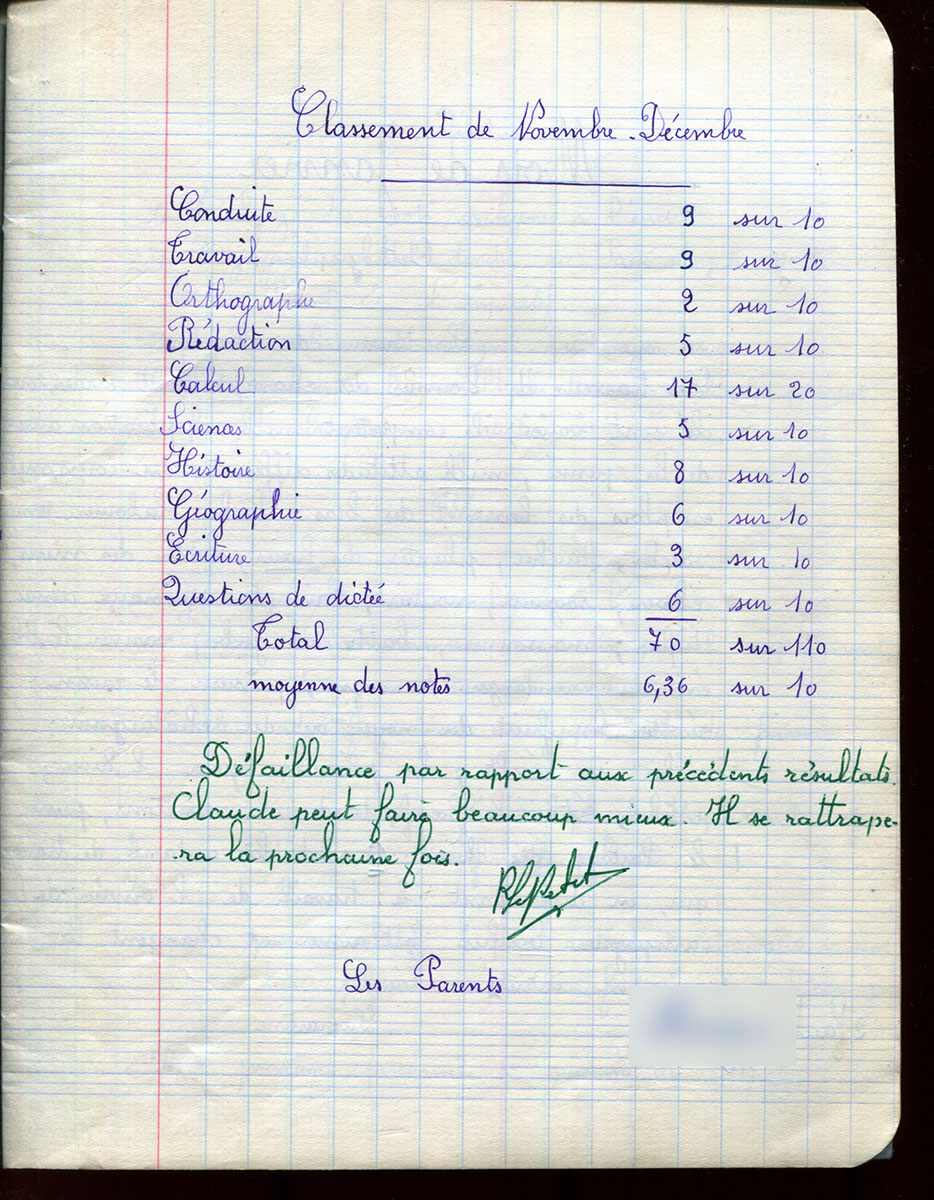 Classement de Novembre - Décembre
Conduite 9 sur 10
Travail 9 sur 10
Orthographe 2 sur 10
Rédaction 5 sur 10
Calcul 17 sur 20
Sciences 5 sur 10
Histoire 8 sur 10
Géographie 6 sur 10
Ecriture 3 sur 10
Questions de dictée 6 sur 10
Total 70 sur 110
moyenne des notes 6,36 sur 10
Défaillance par rapport aux précédents résultats.
Claude peut faire beaucoup mieux. Il se rattrape-
-ra la prochaine fois.
Les Parents